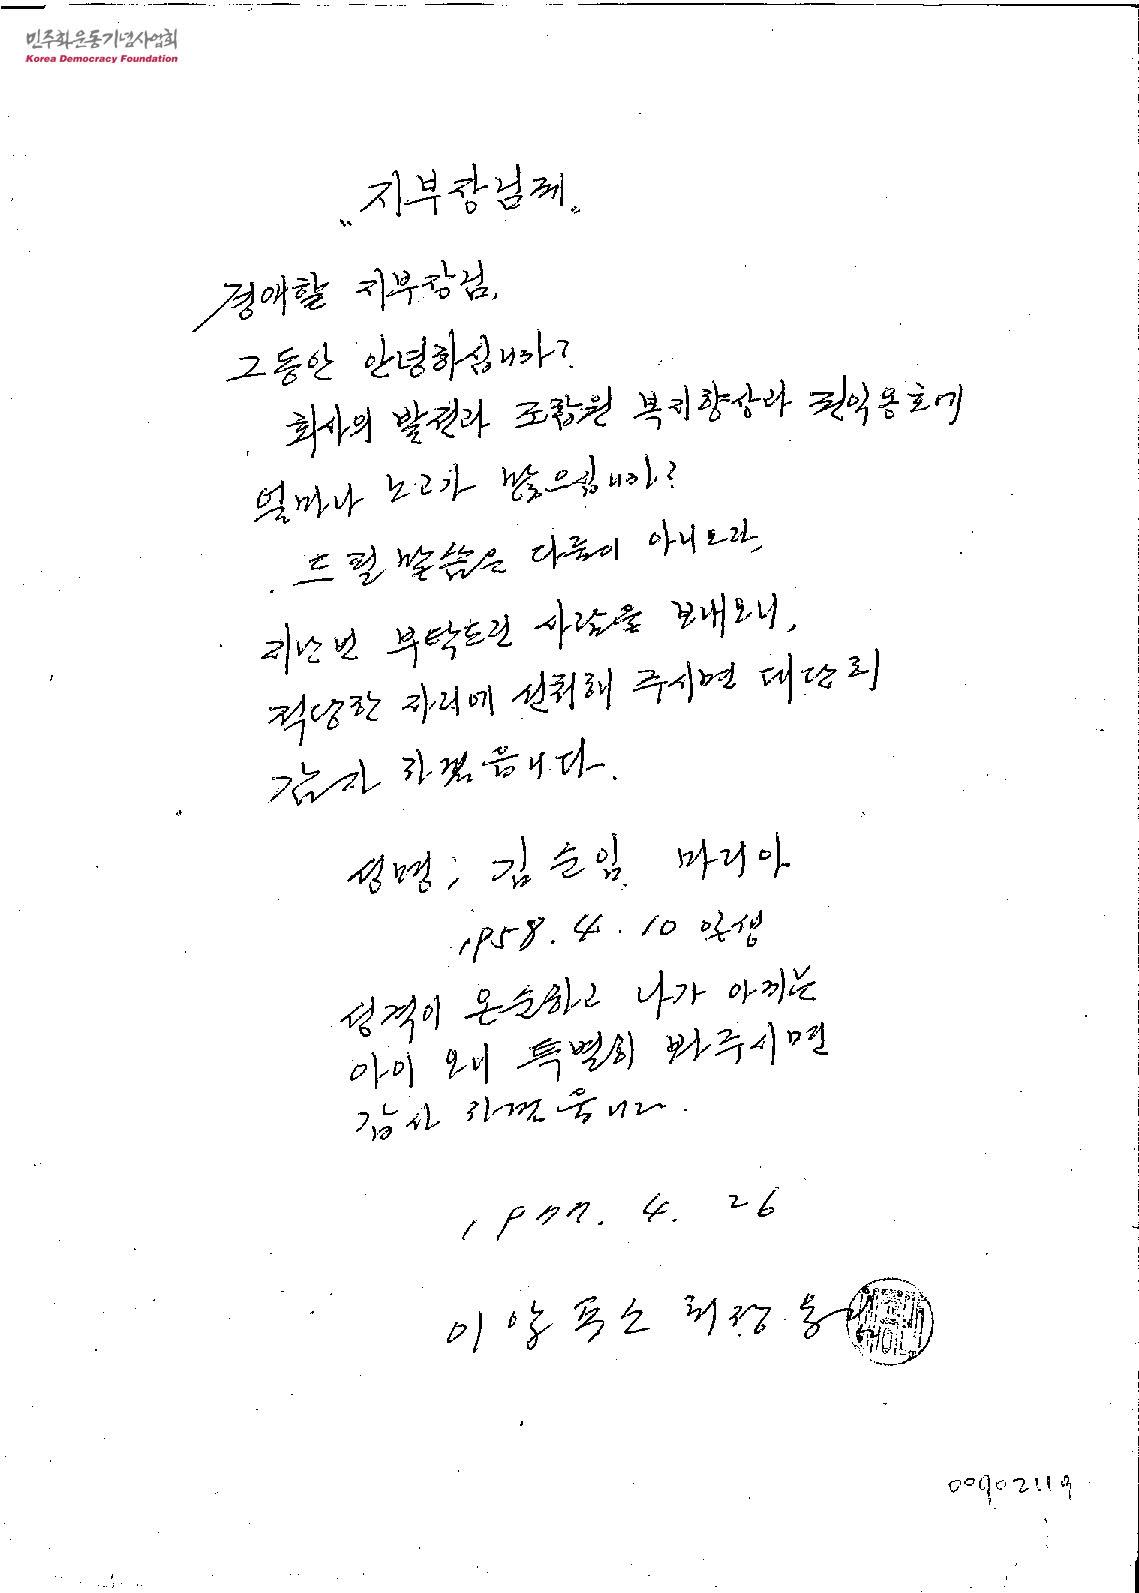 민주화운동기념사업회
Korea Democracy Foundation
"지부장님께"
경애할 지부장님,
그동안 안녕하십니까?
회사의 발전과 조합원 복지향상과 권익옹호에
얼마나 노고가 많으십니까?
드릴 말씀은 다름이 아니오라,
지난번 부탁드린 사람을 보내오니,
적당한 자리에 선취해 주시면 대단히
감사 하겠읍니다.
성명; 김순임 마리아
1958. 4. 10 일생
성격이 온순하고 나가 아끼는
아이 오니 특별히 봐주시면
감사 하겠읍니다.
1977. 4. 26
이알퐁소 회장
00902119